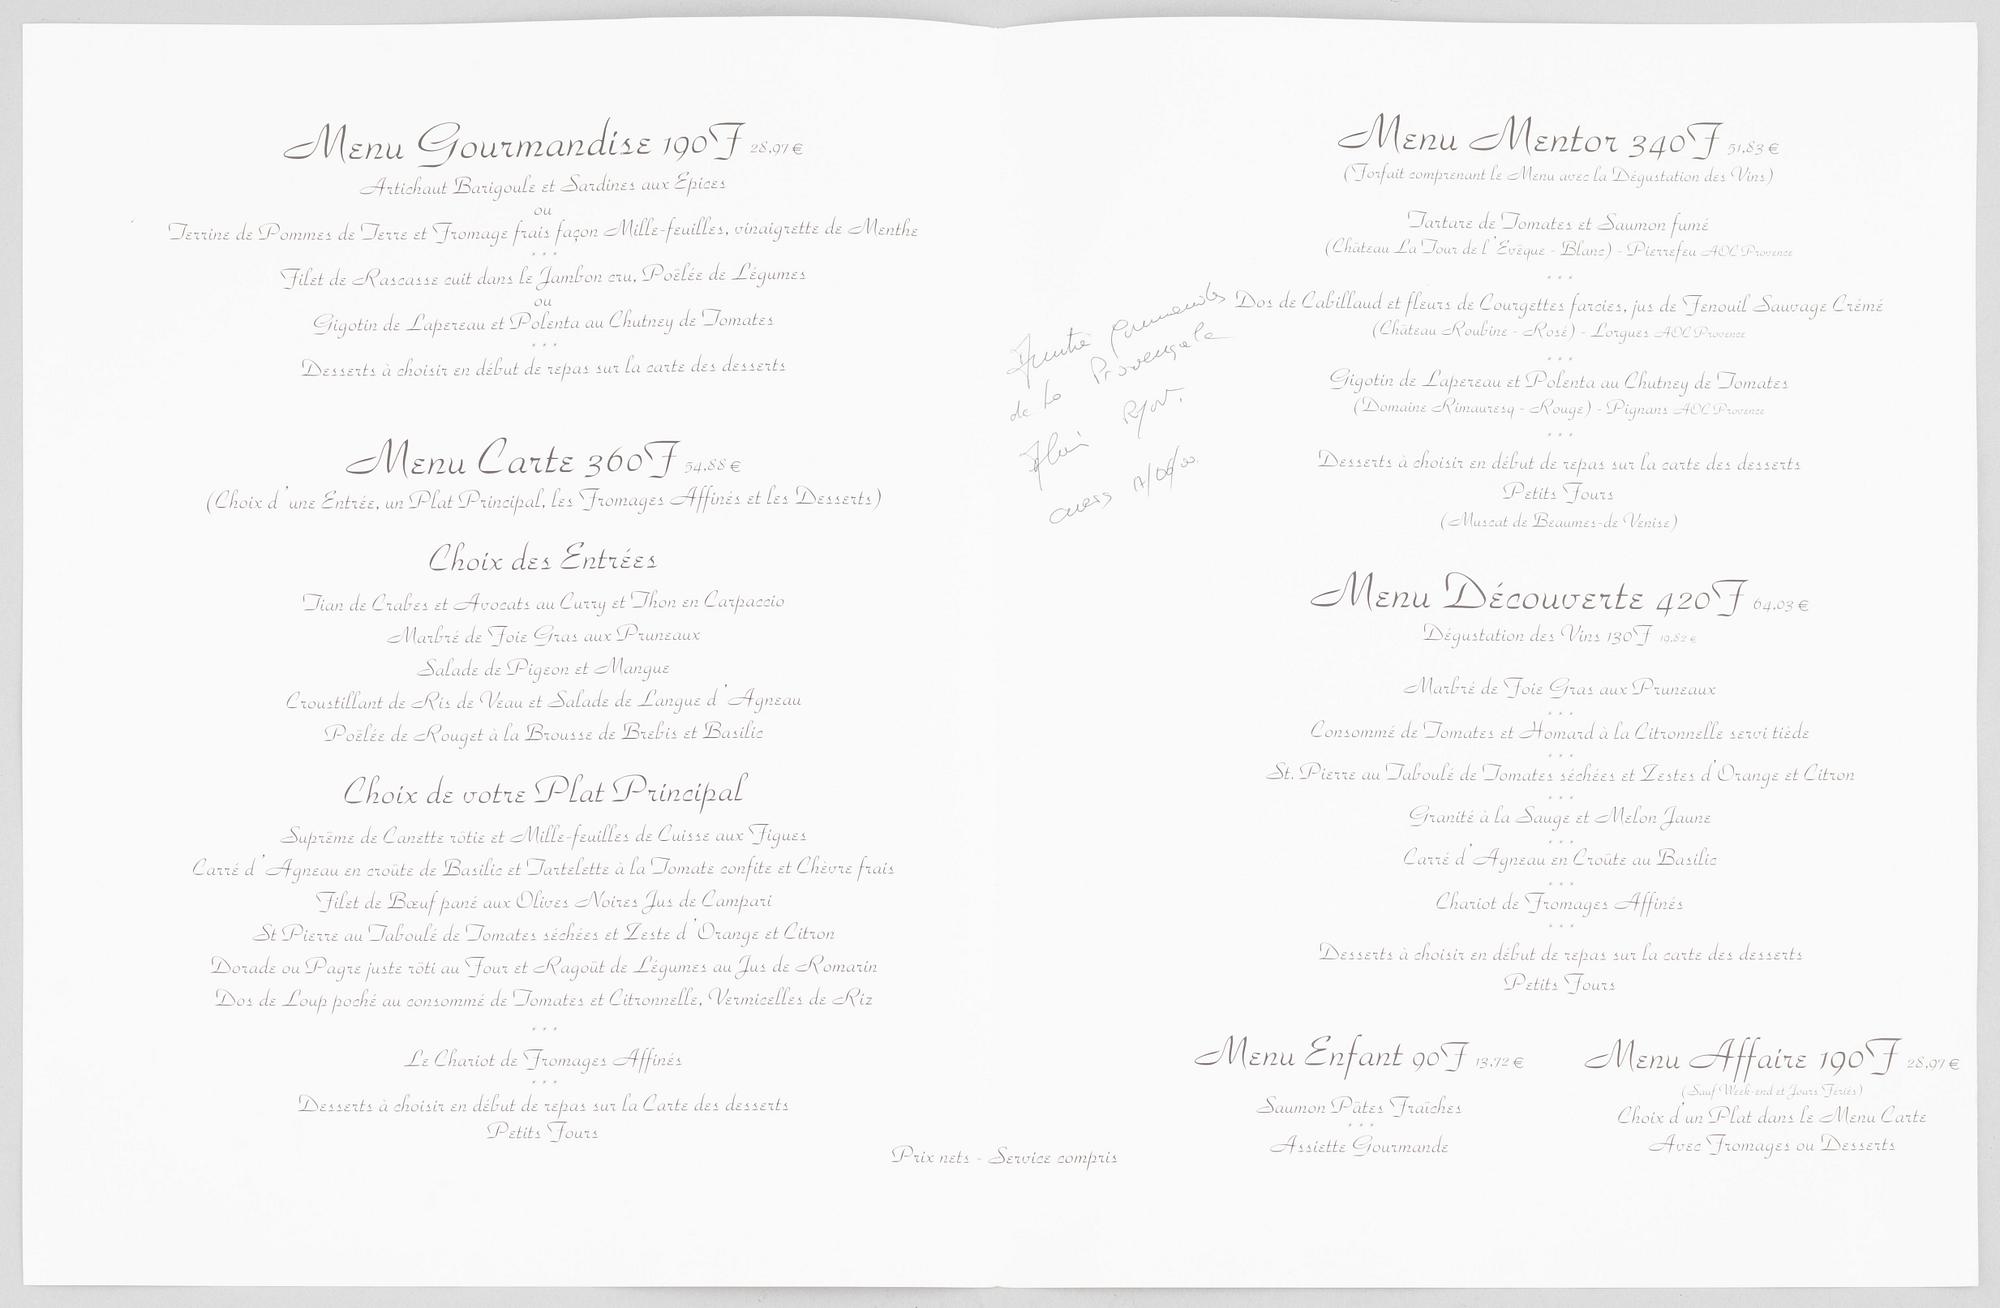 Menu Gourmandise 190F 28,97 €
Artichaut Barigoule et Sardines aux Epices
ou
Terrine de Pommes de Terre et Fromage frais façon Mille-feuilles, vinaigrette de Menthe
* * *
Filet de Rascasse cuit dans le Jambon cru, Poëlée de Légumes
ou
Gigotin de Lapereau et Polenta au Chutney de Tomates
* * *
Desserts à choisir en début de repas sur la carte des desserts
Menu Carte 360F 54,88 €
(Choix d'une Entrée, un Plat Principal, les Fromages Affinés et les Desserts)
Choix des Entrées
Tian de Crabes et Avocats au Curry et Thon en Carpaccio
Marbré de Foie Gras aux Pruneaux
Salade de Pigeon et Mangue
Croustillant de Ris de Veau et Salade de Langue d'Agneau
Poëlée de Rouget à la Brousse de Brebis et Basilic
Choix de votre Plat Principal
Suprême de Canette rôtie et Mille-feuilles de Cuisse aux Figues
Carré d'Agneau en croûte de Basilic et Tartelette à la Tomate confite et Chèvre frais
Filet de Bœuf pané aux Olives Noires Jus de Campari
St Pierre au Taboulé de Tomates séchées et Zeste d'Orange et Citron
Dorade ou Pagre juste rôti au Four et Ragoût de Légumes au Jus de Romarin
Dos de Loup poché au consommé de Tomates et Citronnelle, Vermicelles de Riz
* * *
Le Chariot de Fromages Affinés
* * *
Desserts à choisir en début de repas sur la Carte des desserts
Petits Fours
Prix nets - Service compris
de la Provençale
Menu Mentor 340F 51,83 €
(Forfait comprenant le Menu avec la Dégustation des Vins)
Tartare de Tomates et Saumon fumé
(Château La Tour de l'Evêque - Blanc) - Pierrefeu AOC Provence
* * *
Dos de Cabillaud et fleurs de Courgettes farcies, jus de Fenouil Sauvage Crémé
(Château Roubine - Rosé) - Lorgues AOC Provence
* * *
Gigotin de Lapereau et Polenta au Chutney de Tomates
(Domaine Rimauresq - Rouge) - Pignans AOC Provence
* * *
Desserts à choisir en début de repas sur la carte des desserts
Petits Fours
(Muscat de Beaumes-de Venise)
Menu Découverte 420F 64,03 €
Dégustation des Vins 130F 19,82 €
Marbré de Foie Gras aux Pruneaux
* * *
Consommé de Tomates et Homard à la Citronnelle servi tiède
* * *
St. Pierre au Taboulé de Tomates séchées et Zestes d'Orange et Citron
* * *
Granité à la Sauge et Melon Jaune
* * *
Carré d'Agneau en Croûte au Basilic
* * *
Chariot de Fromages Affinés
* * *
Desserts à choisir en début de repas sur la carte des desserts
Petits Fours
Menu Enfant 90F 13,72 €
Saumon Pâtes Fraîches
* * *
Assiette Gourmande
Menu Affaire 190F 28,97 €
(Sauf Week-end et Jours Feriés)
Choix d'un Plat dans le Menu Carte
Avec Fromages ou Desserts